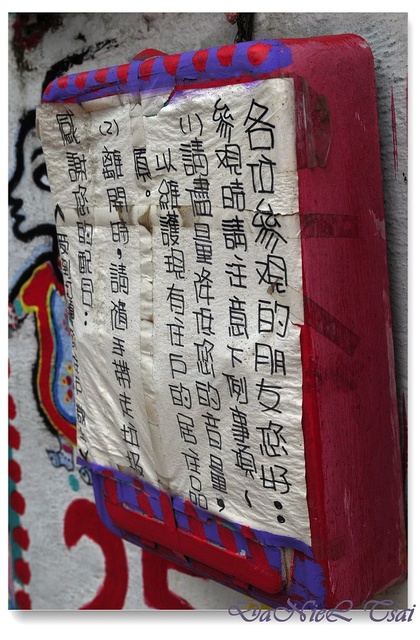 各位參觀的朋友您好：
參觀時請注意下列事項~
(1)請儘量降低您的音量，
以維護現有住戶的居住品
原。
(2)離開時，請隨手携走垃圾
感謝您的配合：
DaNieL Tsai